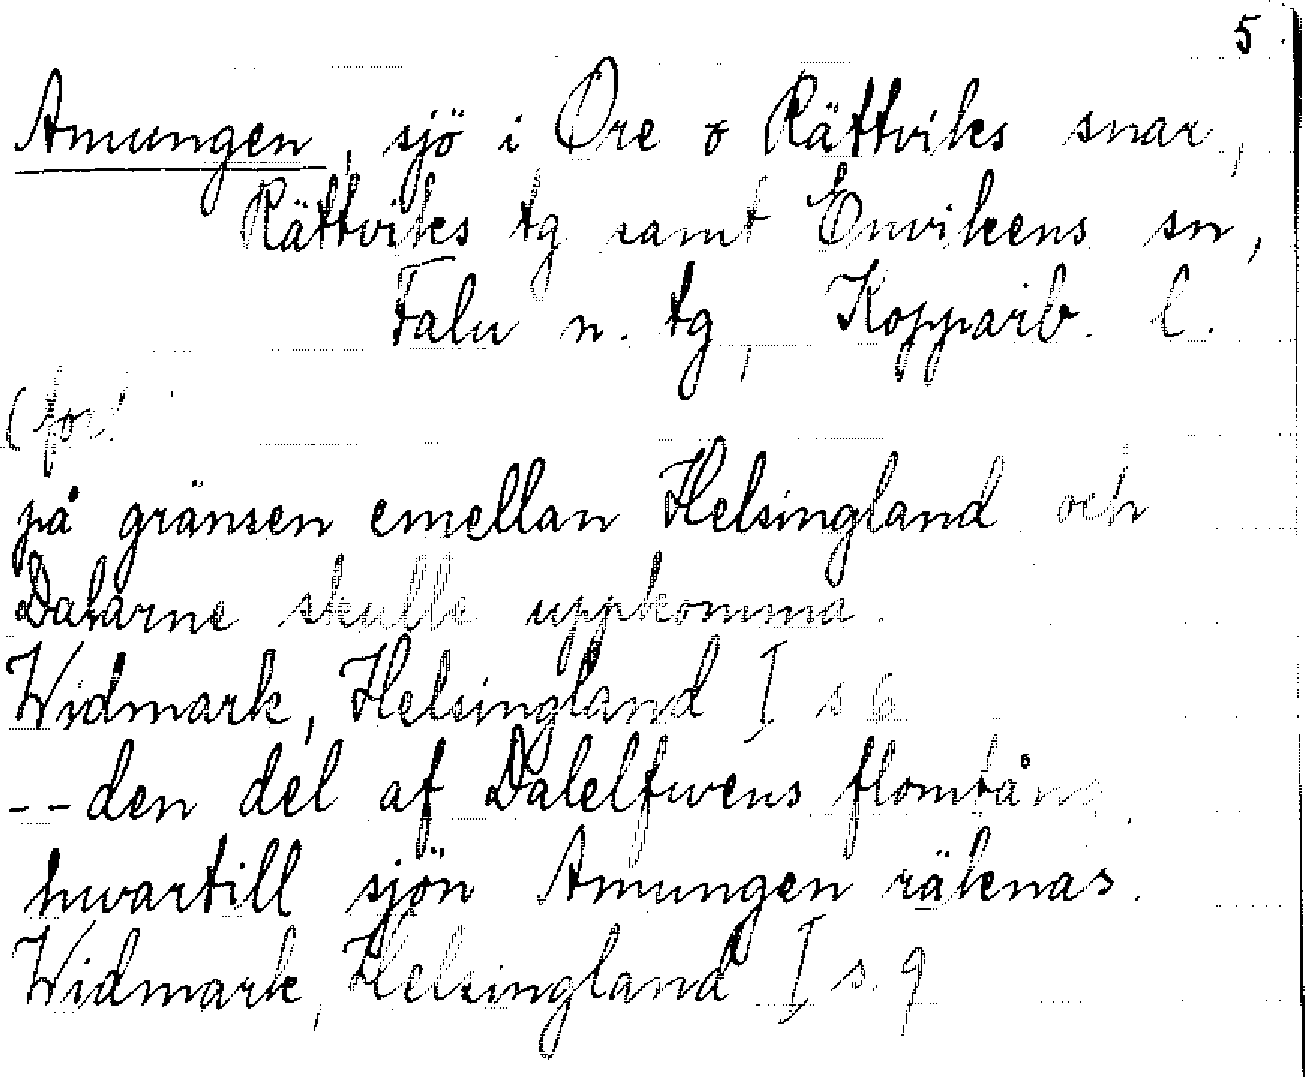 5
Amungen, sjö i Ore o Rättviks snar,
Rättviks tg samt Envikens sn,
Falu n. tg, Kopparb. l.
(fort
på gränsen emellan Helsingland och
Dalarne skulle uppkomma.
Widmark, Helsingland I s 6
--den del af Dalelfwens flomtång
hwartill sjön Amungen räknas.
Widmark, Helsingland I s. 9